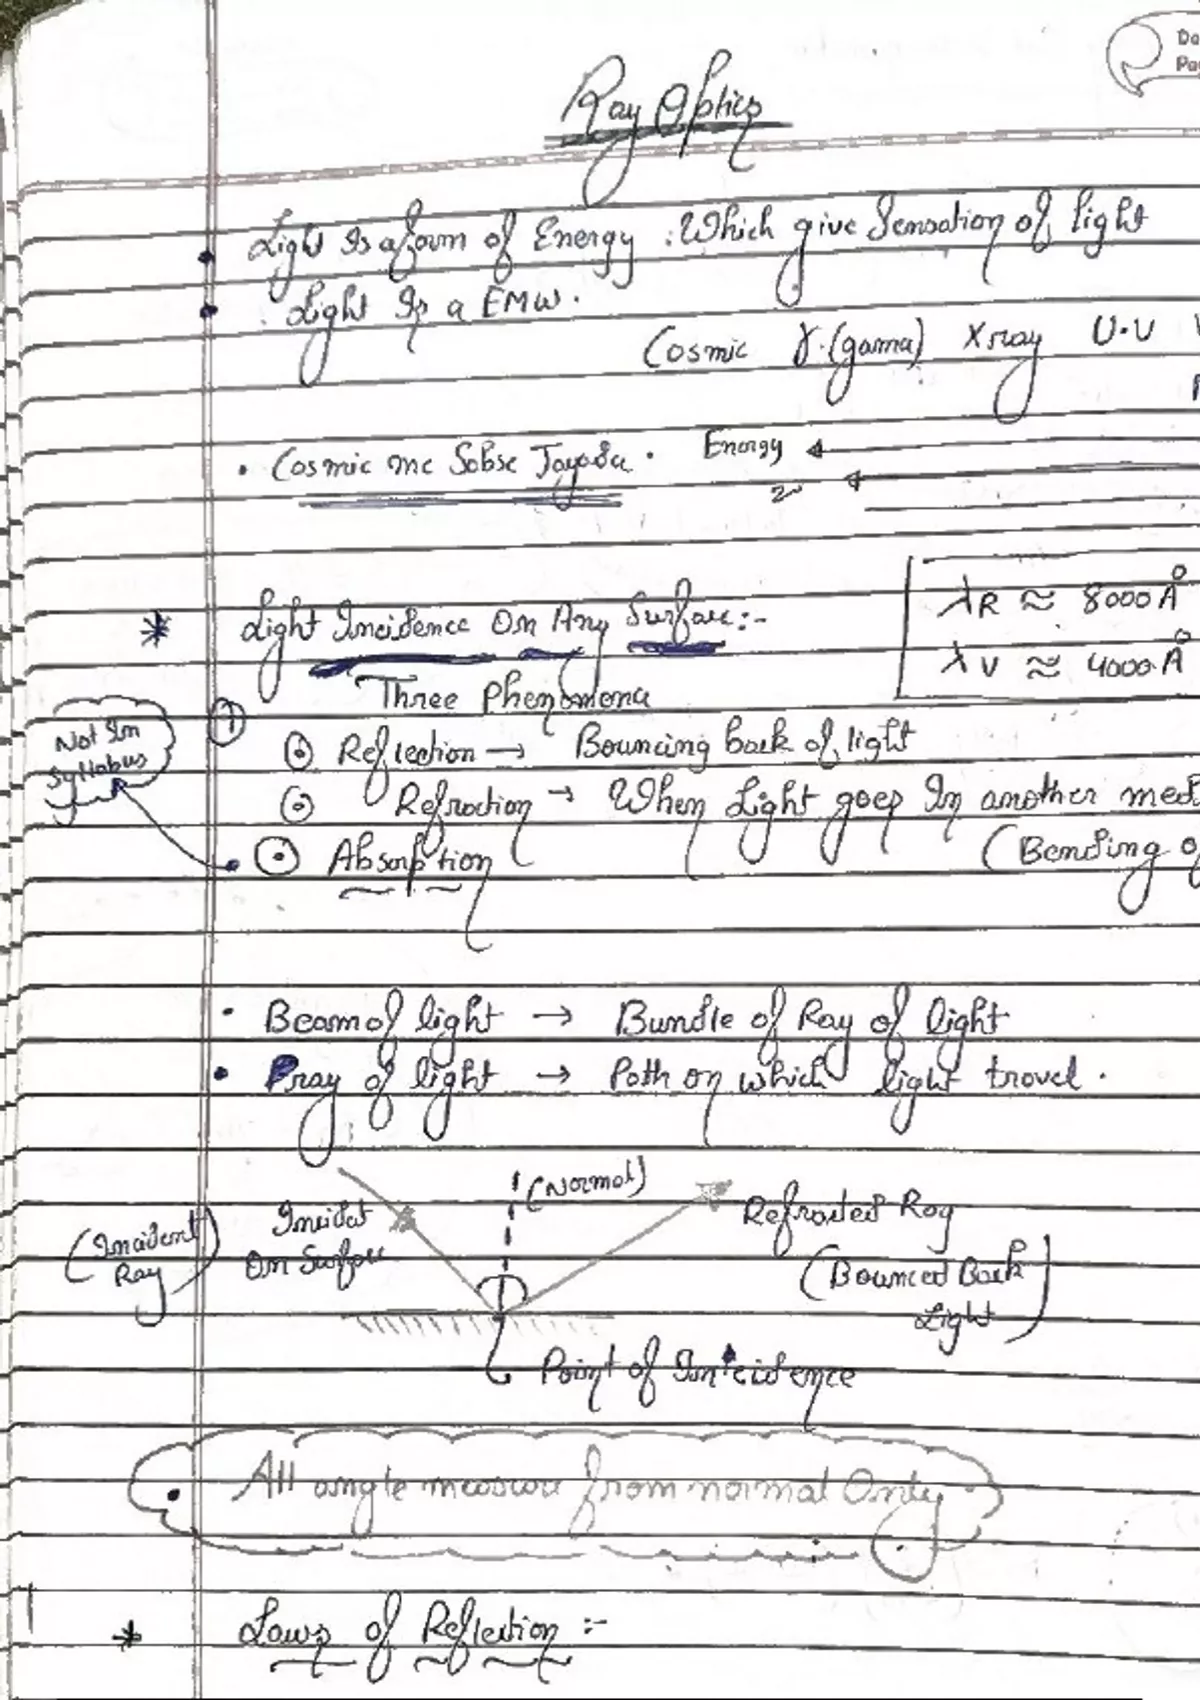 Da
Pa
Ray Optics
Light Is a form of Energy . Which give Sensation of light
Light Is a EMW.
Cosmic γ.(gama) Xray U.V
Cosmic me Sabse Jayada . Energy
Light Incidence On Any Surface:-
λR ≈ 8000 Å
λV ≈ 4000 Å
Three Phenomena
Not In
Syllabus
Reflection → Bouncing back of light
Refraction → When Light goes In another med
Absorption
(Bending of
Beam of light → Bundle of Ray of light
Pray of light → Path on which light travel.
(Normal)
Incident
On Surface
(Incident
Ray)
Refracted Ray
(Bounced Back
Light)
Point of Intcidence
All angle measure from normal Only
Laws of Reflection :-